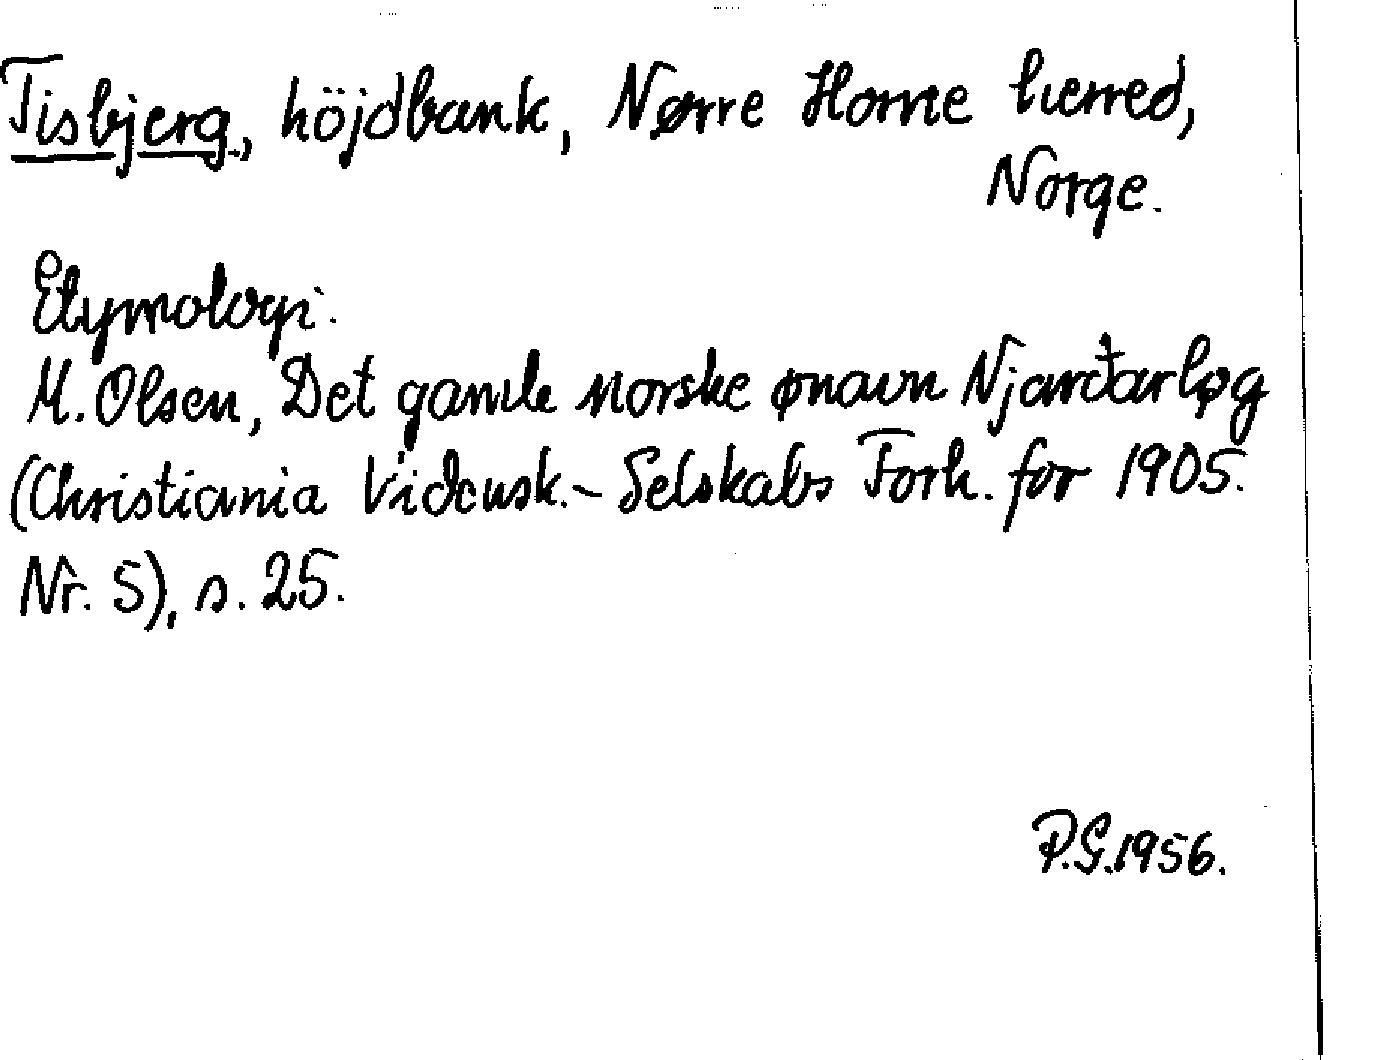 Tisbjerg, höjdbank, Nørre Horne herred,
Norge.
Etymologi:
M. Olsen, Det gamle norske ønavn Njarðarløg
(Christiania Vidensk.-Selskabs Forh. for 1905.
Nr. 5), s. 25.
P.G. 1956.